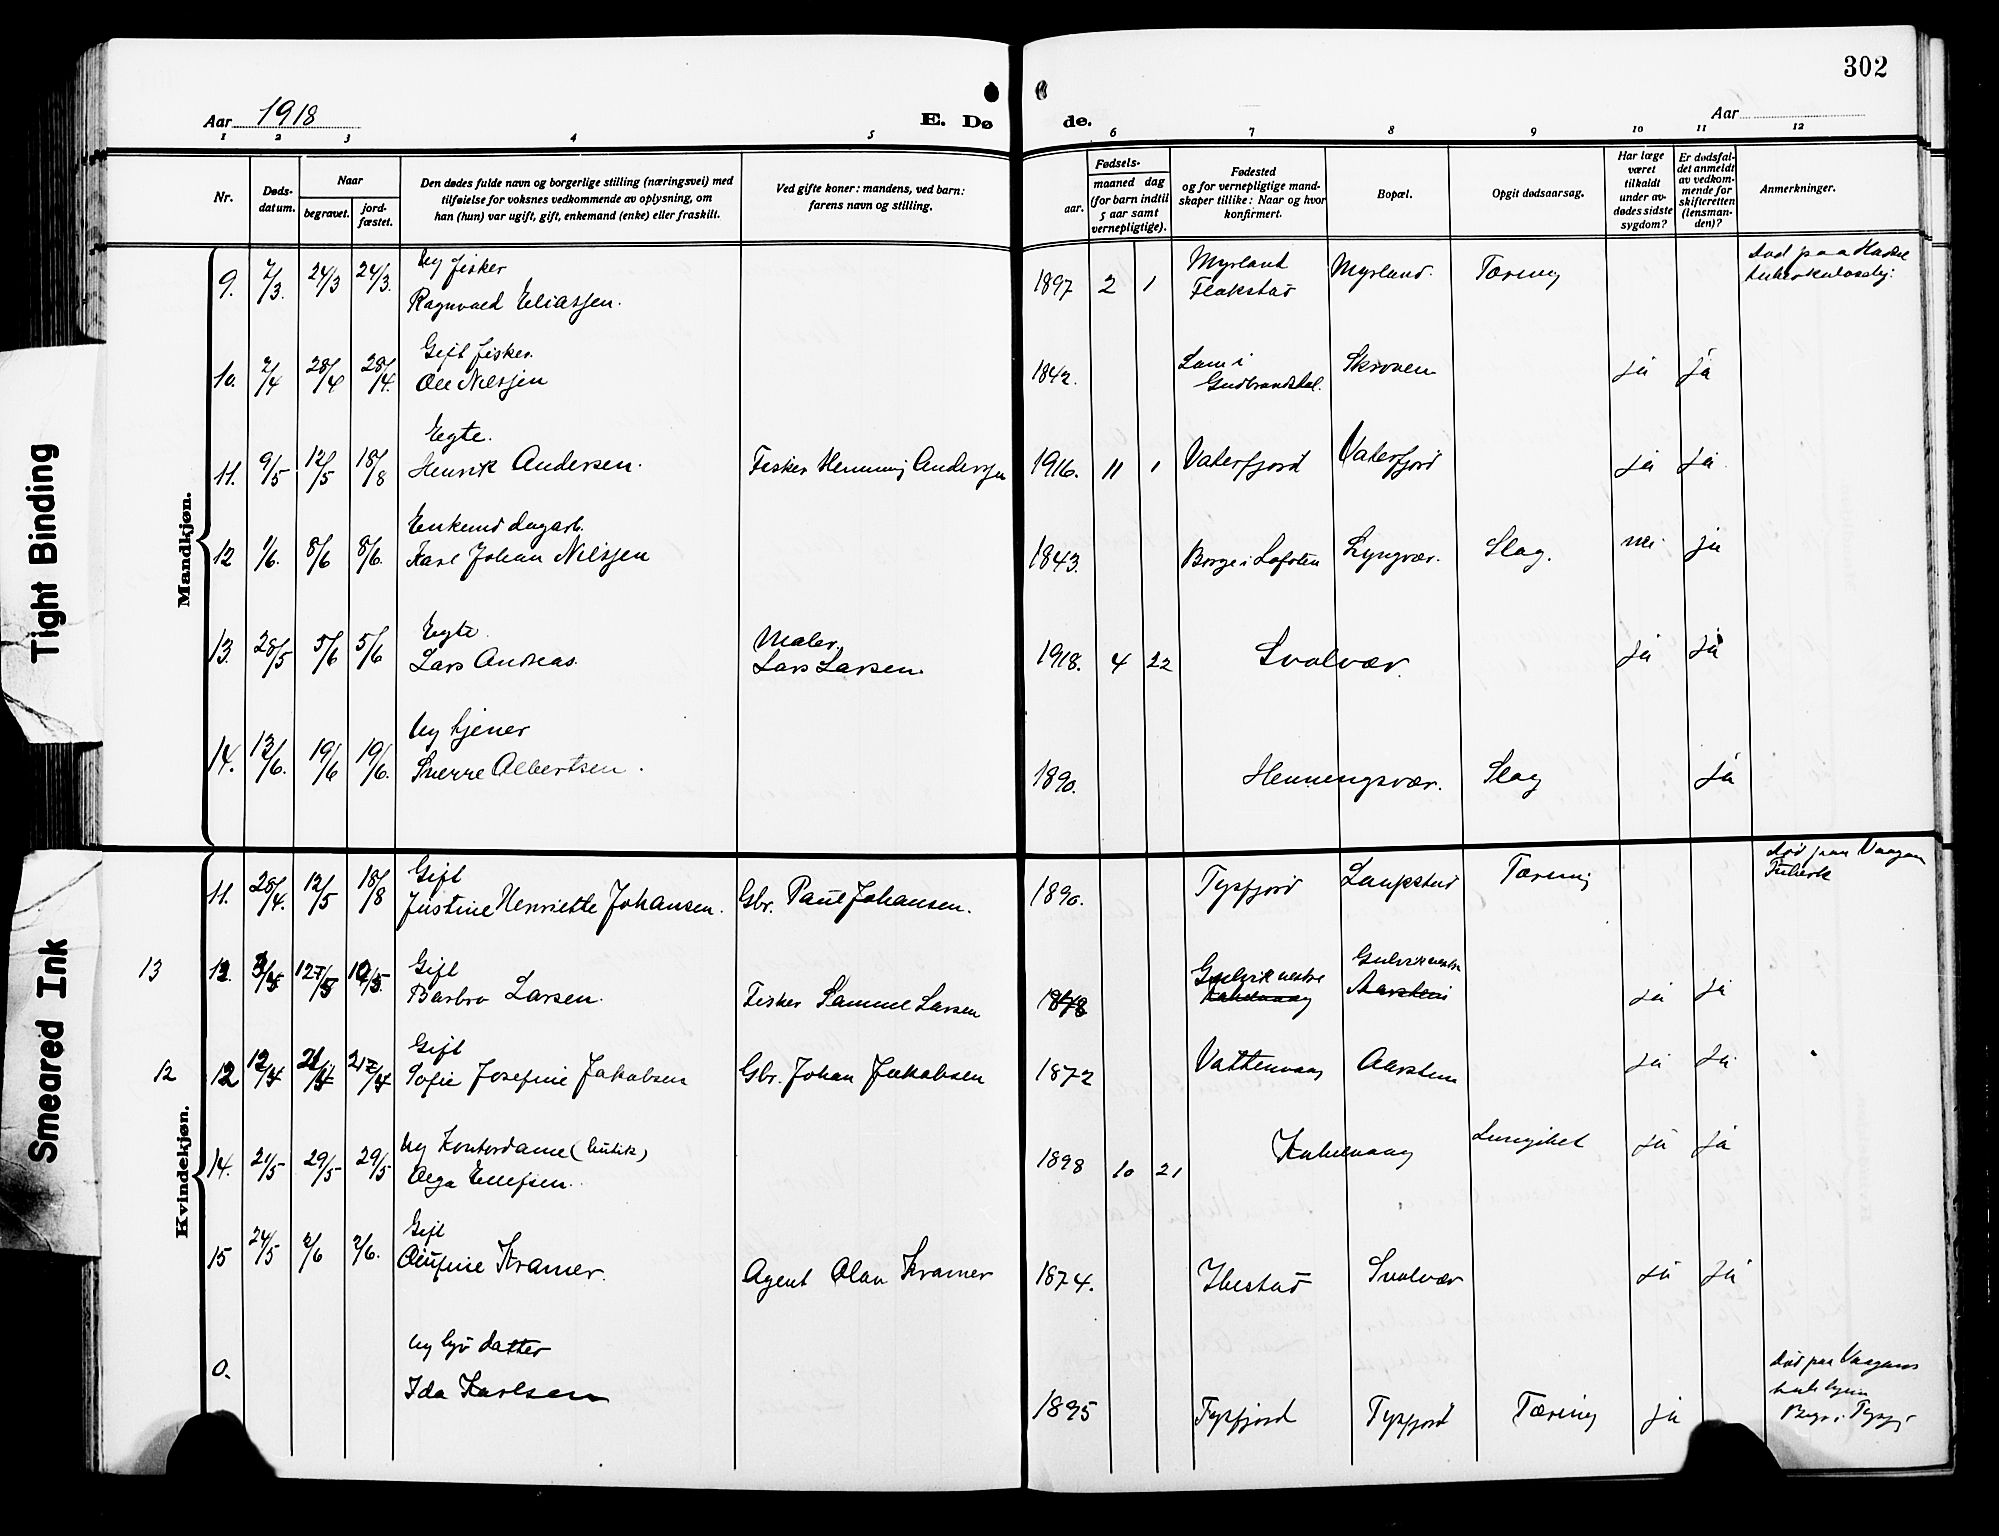 302
Aar 1918
E. Dø
de.
Aar
1 2 3 4 5 6 7 8 9 10 11 12
Nr.
Døds-
datum.
Naar
begravet.
jord-
fæstet.
Den dødes fulde navn og borgerlige stilling (næringsvei) med
tilføielse for voksnes vedkommende av oplysning, om
han (hun) var ugift, gift, enkemand (enke) eller fraskilt.
Ved gifte koner: mandens, ved barn:
farens navn og stilling.
Fødsels-
aar.
maaned dag
(for barn indtil
5 aar samt
vernepligtige).
Fødested
og for vernepligtige mand-
skaper tillike: Naar og hvor
konfirmert.
Bopæl.
Opgit dødsaarsag.
Har læge
været
tilkaldt
under av-
dødes sidste
sygdom?
Er dødsfal-
det anmeldt
av vedkom-
mende for
skifteretten
(lensman-
den)?
Anmerkninger.
Mandkjøn.
Ug fisker
9. 7/3. 24/3 24/3. Ragnvald Eliassen. 1897 2 1 Myrland Flakstad Myrland. Tæring
Gift fisker.
10. 7/4 28/4 28/4. Ole Nilssen 1842. Lom i Gudbrandsdal. Skroven ja ja
Egte.
11. 9/5 12/5 18/8 Henrik Andersen. Fisker Henning Anderssen 1916. 11 1 Vaterfjord Vaterfjord ja ja
Enkemd dagarb.
12 1/6. 8/6 8/6. Karl Johan Nilssen 1843. Borge i Lofoten Lyngvær. Slag. nei ja
Egte.
13. 28/5 5/6 5/6 Lars Andreas. Maler. Lars Larsen. 1918. 4 22 Svolvær. ja ja
Ug tjener
14. 13/6. 19/6 19/6. Sverre Albertsen. 1890. Henningsvær. Slag ja
Kvindekjøn.
Gift
11. 28/4. 12/5 18/8 Justine Henriette Johansen. Gbr. Paul Johansen. 1890. Tysfjord Laupstad Tæring
Gift
13 Barbro Larsen. Fisker Samuel Larsen Gulvik vestre Gulvik vestre ja ja
Gift
12 12 Sofie Josefine Jakobsen Gbr. Johan Jakobsen 1872 Vattenvaag Aarstein ja ja
Ug Kontordame (butik)
14. 21/5 29/5 29/5 Olga Ellefsen. 1898 10 21 Kabelvaag ja ja
Gift
15 24/5 2/6 2/6. Kramer. Agent Olav Kramer 1874. Ibestad Svolvær ja ja
datter
0. Ida Karlsen 1895 Tysfjord Tysfjord Tæring ja
Tight Binding
Smeared Ink